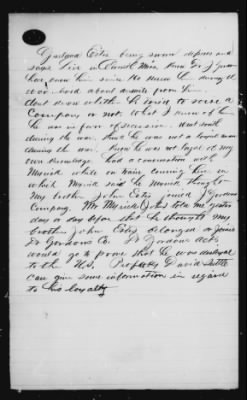 Garland Estes being sworn deposes and
says live in Miss. Knew Dr J Gordon
have known him since He knew he during the
war heard about
dont know whether he tried to raise a
Company or not. What I knew of him
he was in favor of secession. dont
during the war, that he was not a loyal man
during the war. Knew he was not loyal of my
own knowledge had a conversation with
Myrick while on train coming here in
which Myrick said he Myrick thought
my brother John Estes was in Gordons
Company. Mr Myrick also told me yester
day or day before that he thought my
brother John Estes belonged or joined
Dr Gordons Co. Dr Gordons acts
would go to prove that he was disloyal
to the U.S. David
can give some information in regard
to his loyalty